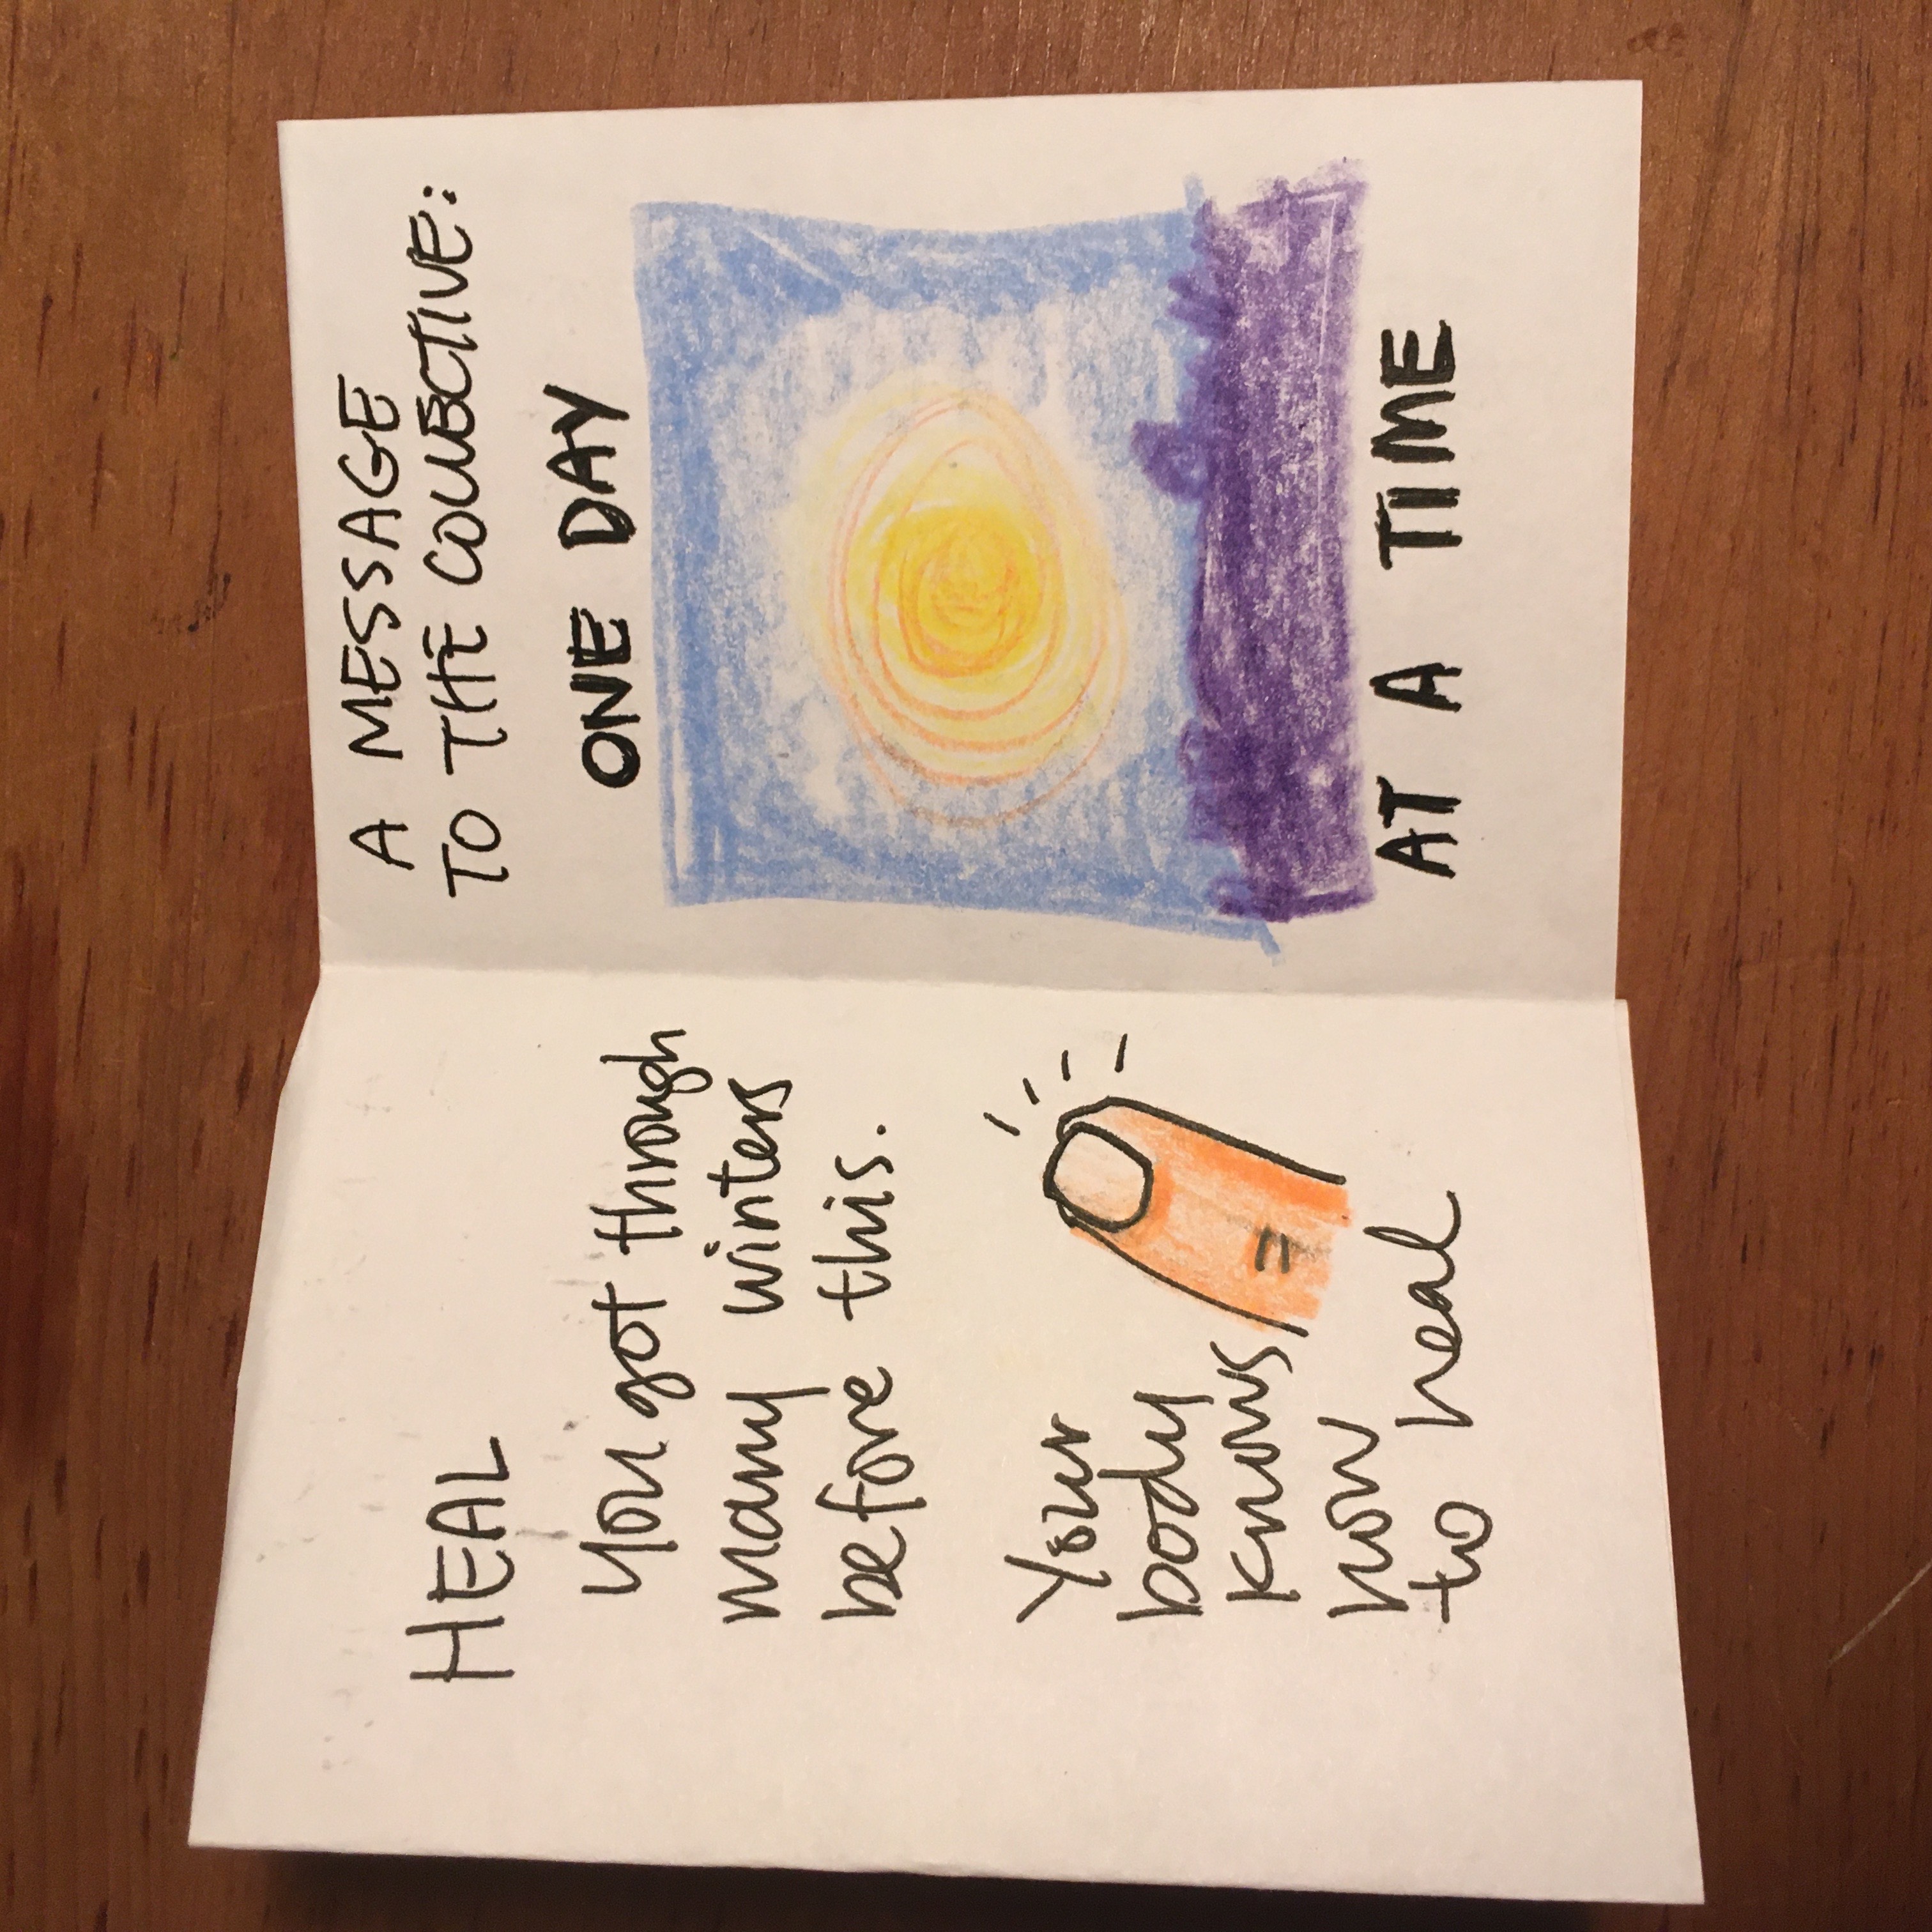 HEAL
You got through
many winters
before this.
Your
body
knows
how
to heal
A MESSAGE
TO THE COLLECTIVE:
ONE DAY
AT A TIME